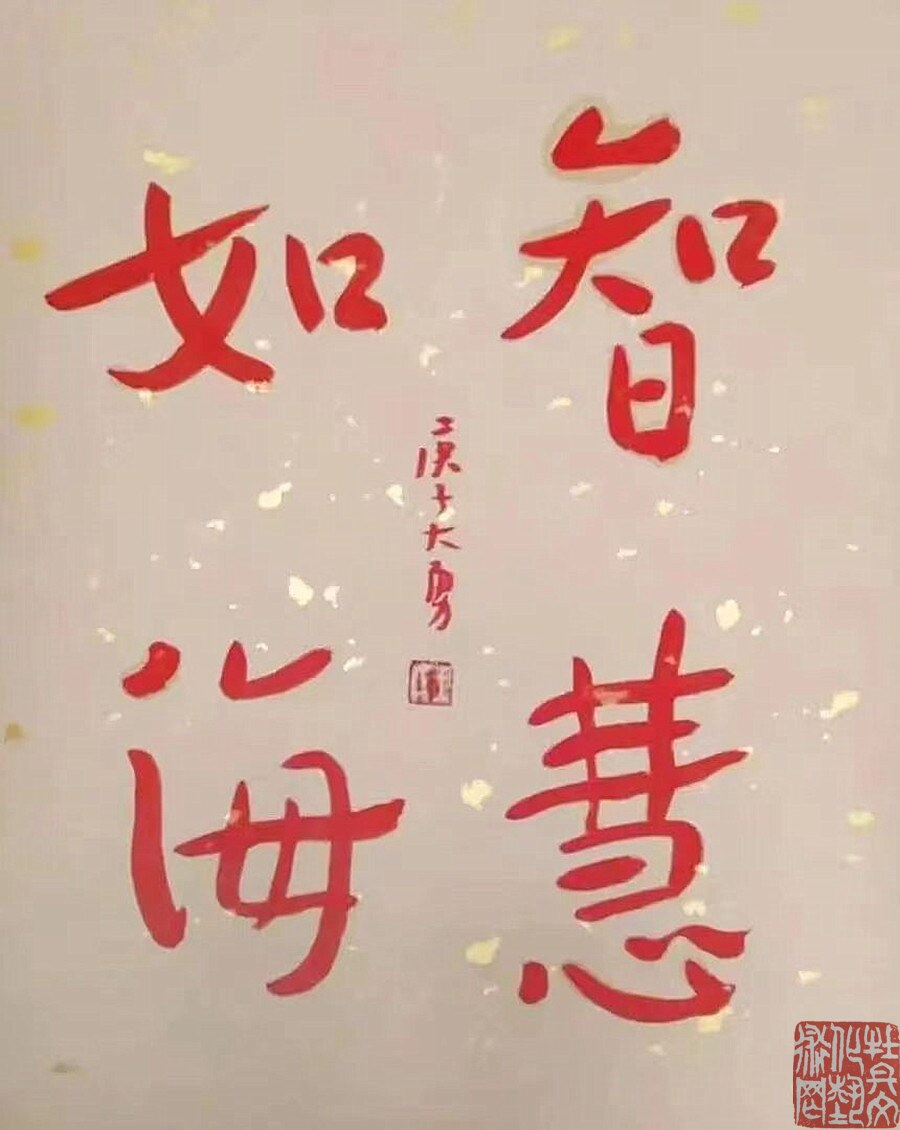 智慧
如海
庚子大勇